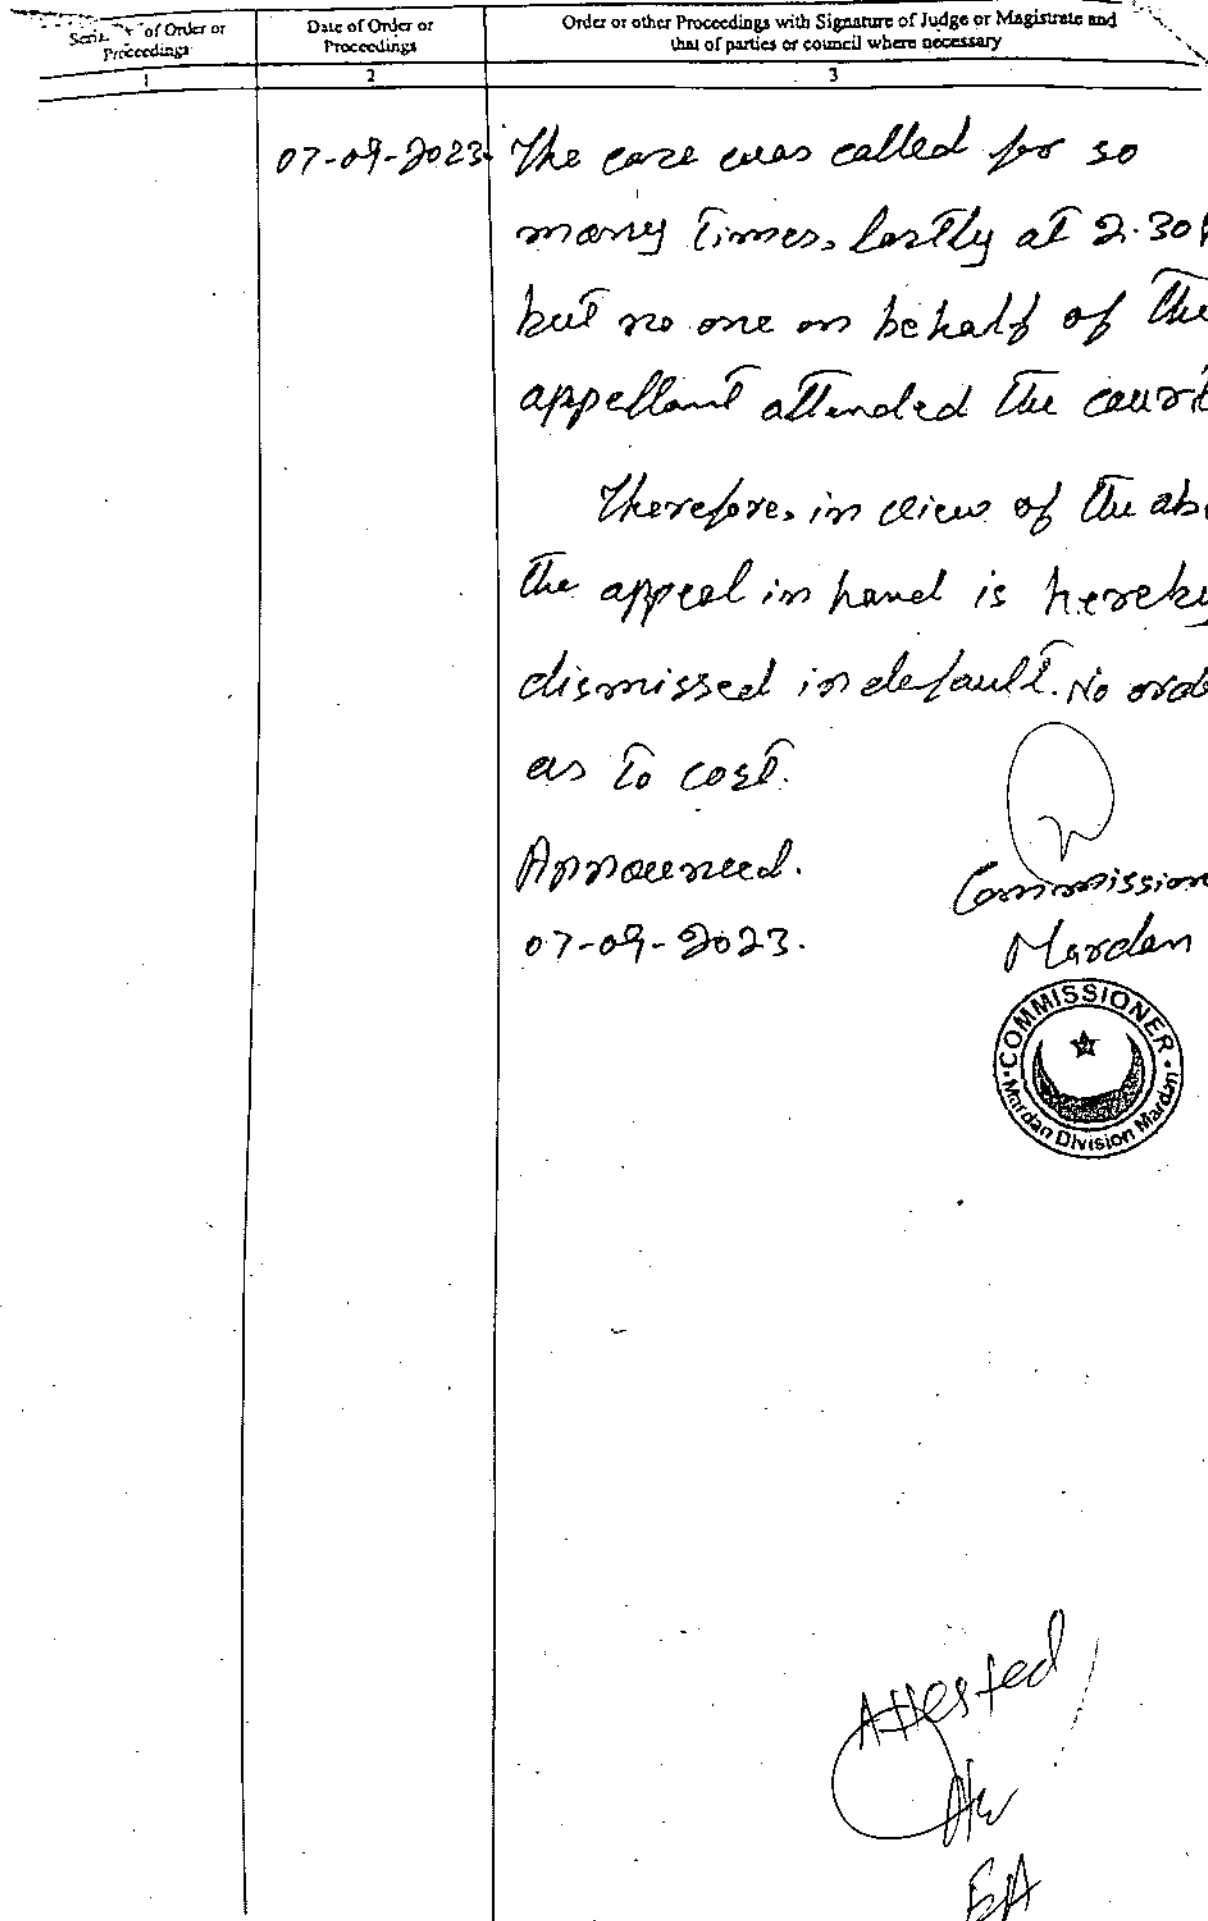 of Order or
Proceedings
Date of Order or
Proceedings
Order or other Proceedings with Signature of Judge or Magistrate and
that of parties or council where necessary
1
2
3
07-09-2023.
The case was called for so
many times, lastly at 2.30
but no one on behalf of the
appellant attended the court
Therefore, in view of the ab
the appeal in hand is hereby
dismissed in default. No ord
as to cost.
Announced.
07-09-2023.
Commission
Mardan
COMMISSIONER
Mardan Division Mardan
Attested